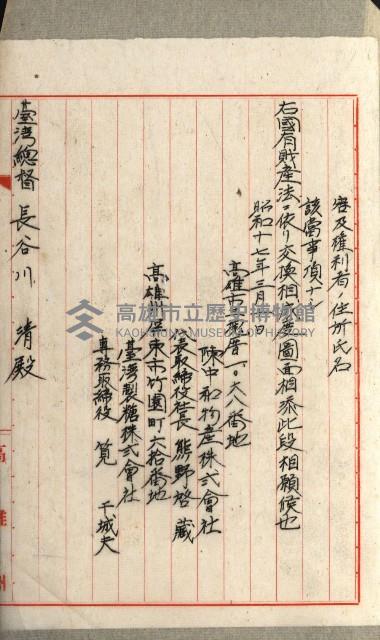 容及權利者ノ住所氏名
該當事項ナシ
右國有財産法ニ依リ交換相成度圖面相添此段相願候也
昭和十七年三月 日
高雄市 番地
陳中和物産株式會社
取締役社長 熊野啓藏
高雄州屏東市竹園町六拾番地
臺灣製糖株式會社
專務取締役 筧 干城夫
臺灣總督 長谷川 清殿
高雄州
高雄市立歷史博物館
KAOHSIUNG MUSEUM OF HISTORY